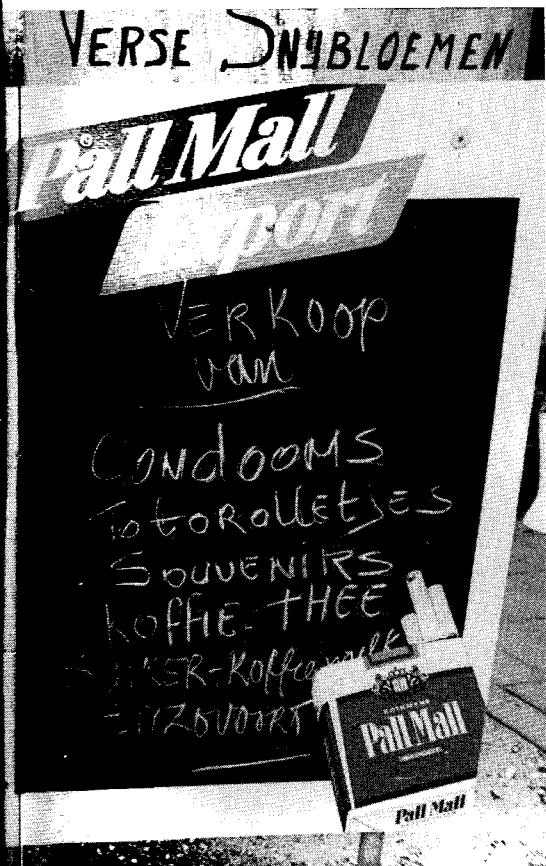 VERSE SNIJBLOEMEN
Pall Mall
Export
VERKOOP
van
CONDOOMS
FOTOROLLETJES
SOUVENIRS
KOFFIE-THEE
SUIKER-Koffiemelk
ENZOVOORT
Pall Mall
Pall Mall